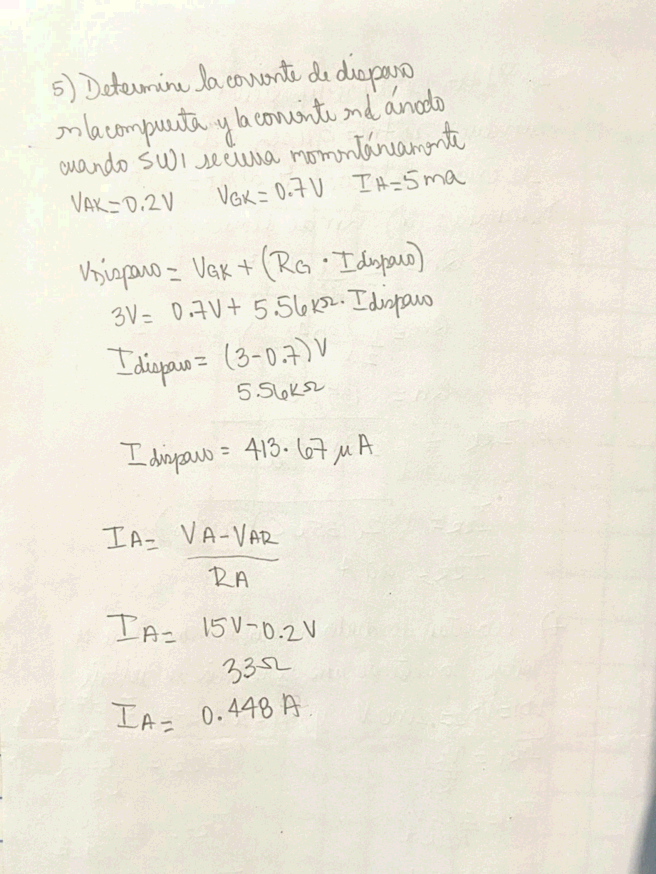 5) Determine la corriente de disparo
en la compuerta y la corriente en el ánodo
cuando SW1 se cierra momentáneamente
VAK=0.2V VGK=0.7V IH=5ma
VDisparo= VGK+(RG · Idisparo)
3V= 0.7V+ 5.56KΩ· Idisparo
Idisparo= (3-0.7)V
5.56KΩ
Idisparo= 413.67 μA
IA= VA-VAK
RA
IA= 15V-0.2V
33Ω
IA= 0.448 A.